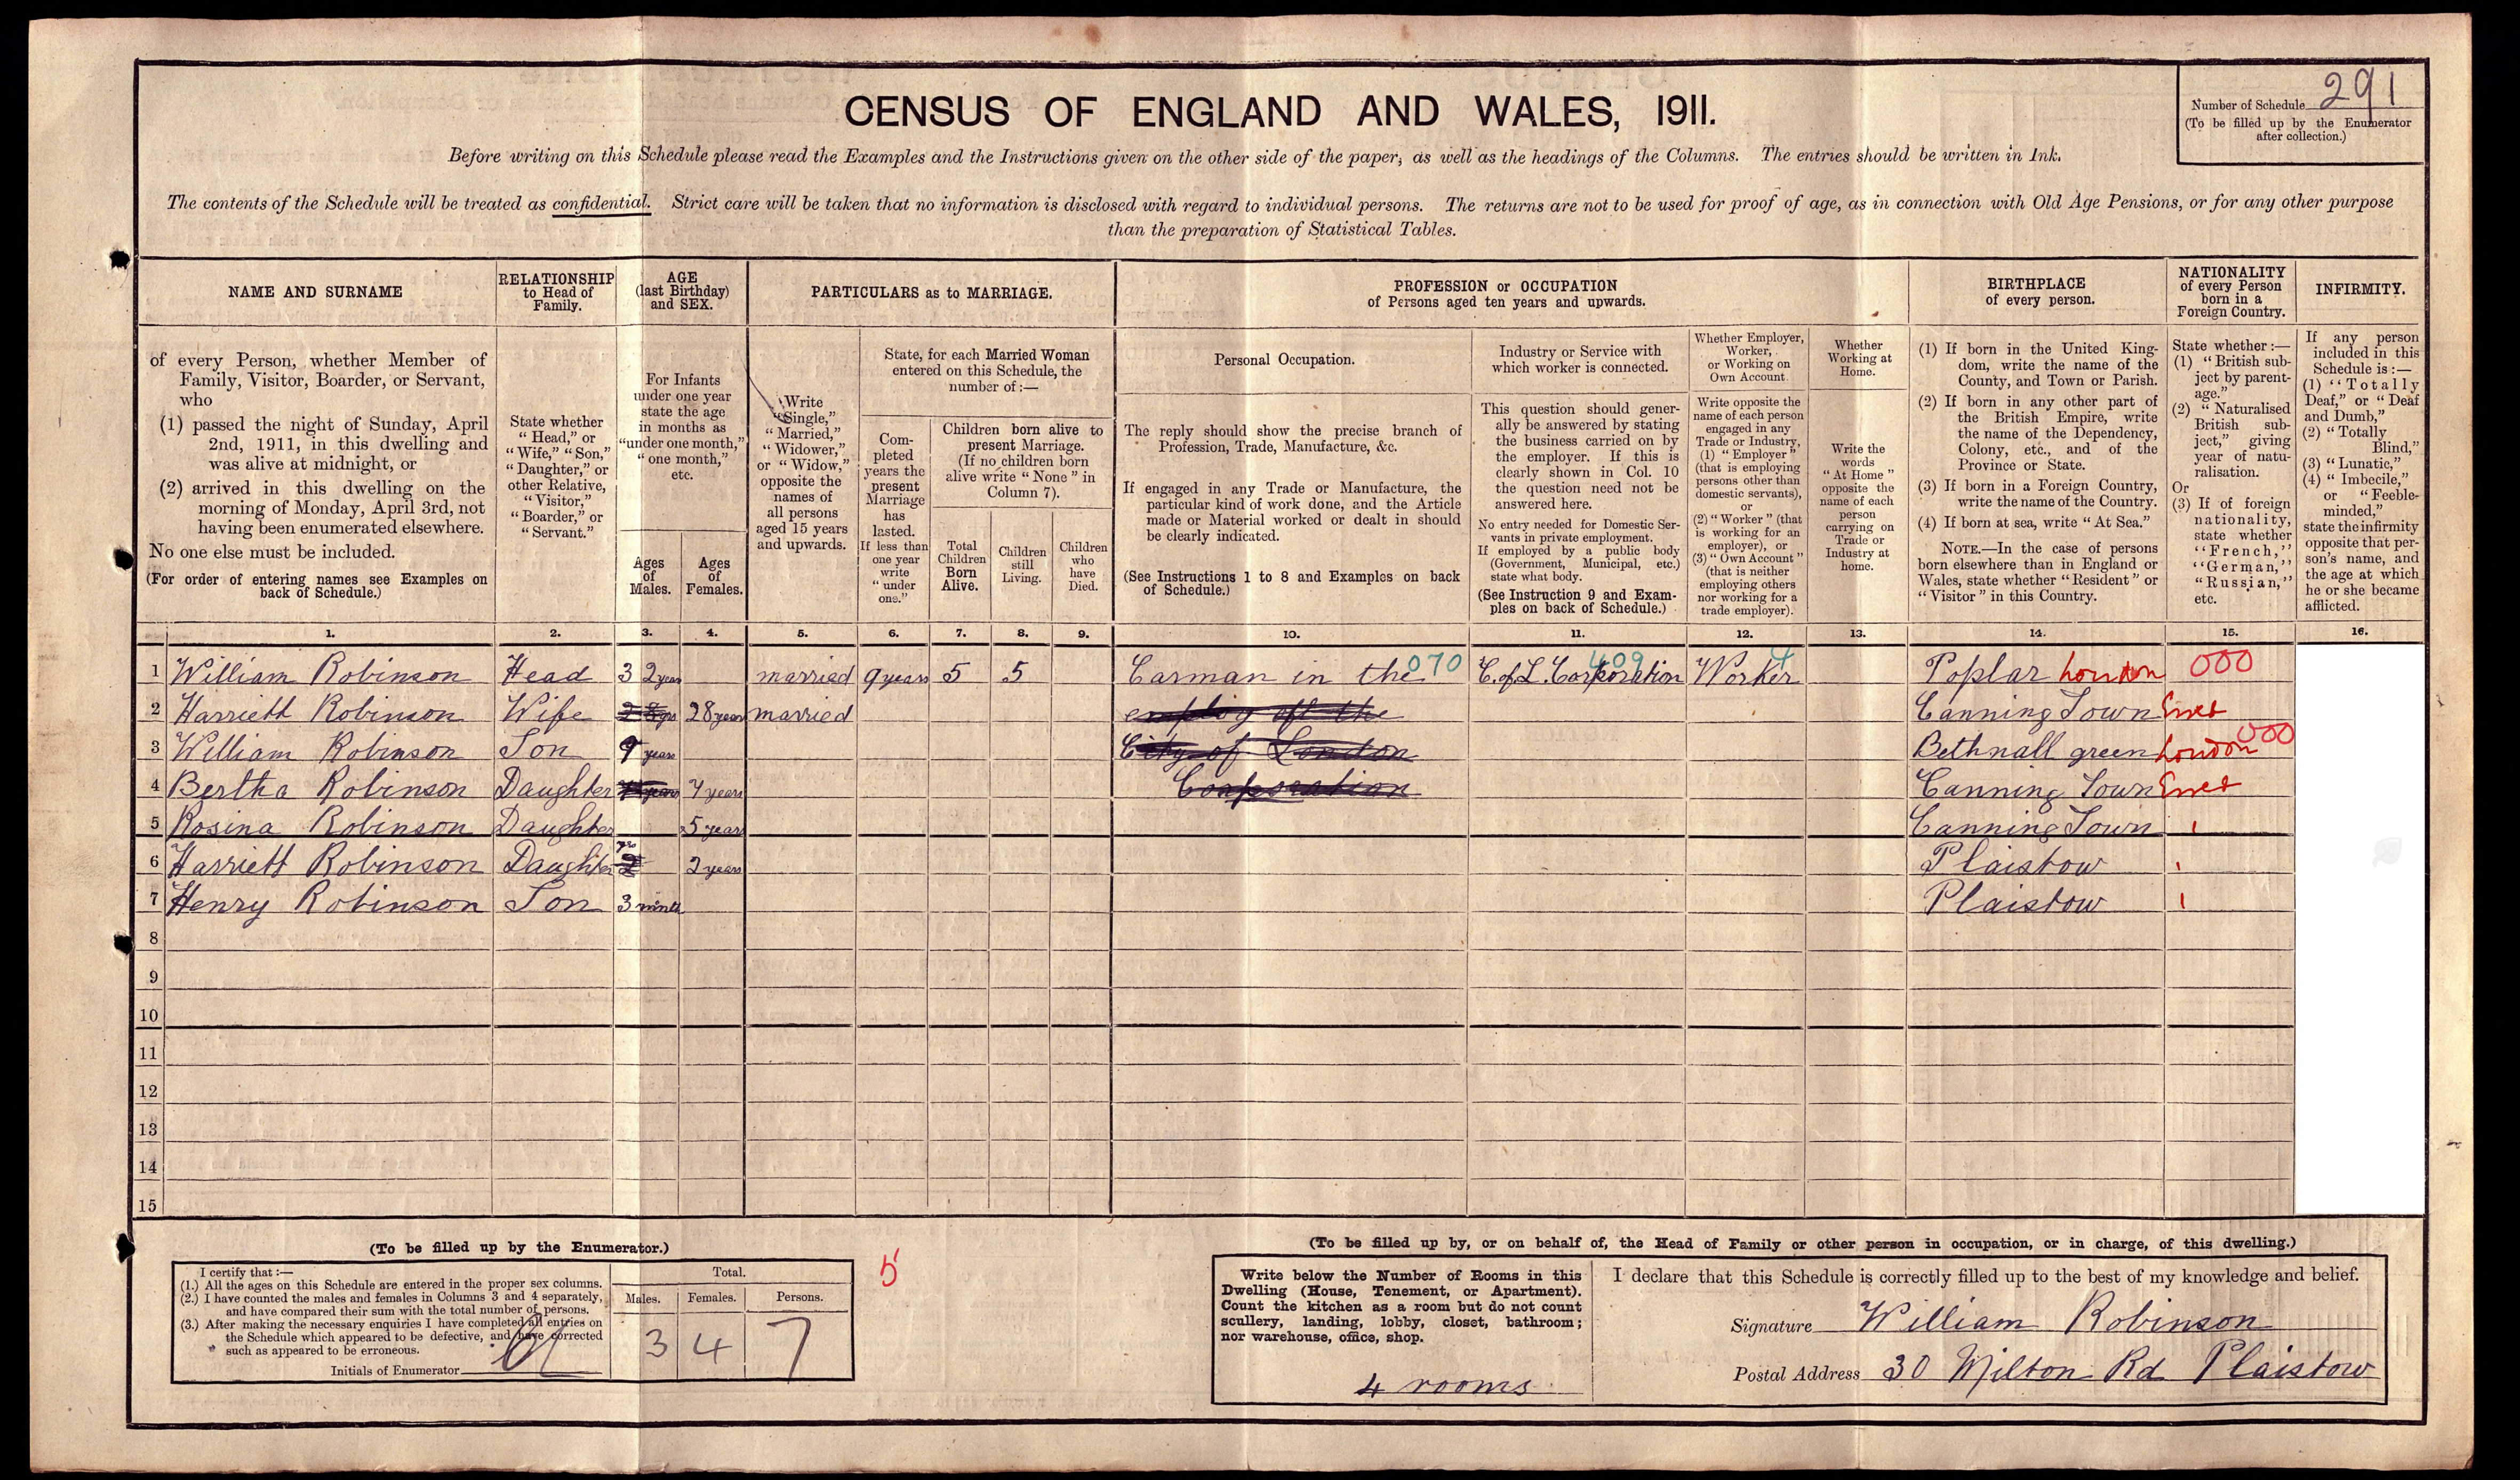 CENSUS OF ENGLAND AND WALES, 1911.
Number of Schedule 291
(To be filled up by the Enumerator
after collection.)
Before writing on this Schedule please read the Examples and the Instructions given on the other side of the paper, as well as the headings of the Columns. The entries should be written in Ink.
The contents of the Schedule will be treated as confidential. Strict care will be taken that no information is disclosed with regard to individual persons. The returns are not to be used for proof of age, as in connection with Old Age Pensions, or for any other purpose
than the preparation of Statistical Tables.
NAME AND SURNAME
RELATIONSHIP
to Head of
Family.
AGE
(last Birthday)
and SEX.
PARTICULARS as to MARRIAGE.
PROFESSION or OCCUPATION
of Persons aged ten years and upwards.
BIRTHPLACE
of every person.
NATIONALITY
of every Person
born in a
Foreign Country.
INFIRMITY.
of every Person, whether Member of
Family, Visitor, Boarder, or Servant,
who
(1) passed the night of Sunday, April
2nd, 1911, in this dwelling and
was alive at midnight, or
(2) arrived in this dwelling on the
morning of Monday, April 3rd, not
having been enumerated elsewhere.
No one else must be included.
(For order of entering names see Examples on
back of Schedule.)
State whether
"Head," or
"Wife," "Son,"
"Daughter," or
other Relative,
"Visitor,"
"Boarder," or
"Servant."
For Infants
under one year
state the age
in months as
"under one month,"
"one month,"
etc.
Ages
of
Males.
Ages
of
Females.
Write
"Single,"
"Married,"
"Widower,"
or "Widow,"
opposite the
names of
all persons
aged 15 years
and upwards.
State, for each Married Woman
entered on this Schedule, the
number of :—
Com-
pleted
years the
present
Marriage
has
lasted.
If less than
one year
write
"under
one."
Children born alive to
present Marriage.
(If no children born
alive write "None" in
Column 7).
Total
Children
Born
Alive.
Children
still
Living.
Children
who
have
Died.
Personal Occupation.
The reply should show the precise branch of
Profession, Trade, Manufacture, &c.
If engaged in any Trade or Manufacture, the
particular kind of work done, and the Article
made or Material worked or dealt in should
be clearly indicated.
(See Instructions 1 to 8 and Examples on back
of Schedule.)
Industry or Service with
which worker is connected.
This question should gener-
ally be answered by stating
the business carried on by
the employer. If this is
clearly shown in Col. 10
the question need not be
answered here.
No entry needed for Domestic Ser-
vants in private employment.
If employed by a public body
(Government, Municipal, etc.)
state what body.
(See Instruction 9 and Exam-
ples on back of Schedule.)
Whether Employer,
Worker,
or Working on
Own Account.
Write opposite the
name of each person
engaged in any
Trade or Industry,
(1) "Employer"
(that is employing
persons other than
domestic servants),
or
(2) "Worker" (that
is working for an
employer), or
(3) "Own Account"
(that is neither
employing others
nor working for a
trade employer).
Whether
Working at
Home.
Write the
words
"At Home"
opposite the
name of each
person
carrying on
Trade or
Industry at
home.
(1) If born in the United King-
dom, write the name of the
County, and Town or Parish.
(2) If born in any other part of
the British Empire, write
the name of the Dependency,
Colony, etc., and of the
Province or State.
(3) If born in a Foreign Country,
write the name of the Country.
(4) If born at sea, write "At Sea."
NOTE.—In the case of persons
born elsewhere than in England or
Wales, state whether "Resident" or
"Visitor" in this Country.
State whether :—
(1) "British sub-
ject by parent-
age."
(2) "Naturalised
British sub-
ject," giving
year of natu-
ralisation.
Or
(3) If of foreign
nationality,
state whether
"French,"
"German,"
"Russian,"
etc.
If any person
included in this
Schedule is :—
(1) "Totally
Deaf," or "Deaf
and Dumb,"
(2) "Totally
Blind,"
(3) "Lunatic,"
(4) "Imbecile,"
or "Feeble-
minded,"
state the infirmity
opposite that per-
son's name, and
the age at which
he or she became
afflicted.
1. 2. 3. 4. 5. 6. 7. 8. 9. 10. 11. 12. 13. 14. 15. 16.
1 William Robinson Head 32 years married 9 years 5 5 Carman in the 070 C. of L. Corporation 409 Worker 4 Poplar London 000
2 Harriett Robinson Wife 28 years married employ of the Canning Town Essex
3 William Robinson Son 9 years City of London Bethnall green London 000
4 Bertha Robinson Daughter 7 years Corporation Canning Town Essex
5 Rosina Robinson Daughter 5 years Canning Town
6 Harriett Robinson Daughter 2 years Plaistow
7 Henry Robinson Son 3 month Plaistow
8
9
10
11
12
13
14
15
(To be filled up by the Enumerator.)
I certify that :—
(1.) All the ages on this Schedule are entered in the proper sex columns.
(2.) I have counted the males and females in Columns 3 and 4 separately,
and have compared their sum with the total number of persons.
(3.) After making the necessary enquiries I have completed all entries on
the Schedule which appeared to be defective, and have corrected
such as appeared to be erroneous.
Initials of Enumerator
Total.
Males. Females. Persons.
3 4 7
5
(To be filled up by, or on behalf of, the Head of Family or other person in occupation, or in charge, of this dwelling.)
Write below the Number of Rooms in this
Dwelling (House, Tenement, or Apartment).
Count the kitchen as a room but do not count
scullery, landing, lobby, closet, bathroom;
nor warehouse, office, shop.
4 rooms
I declare that this Schedule is correctly filled up to the best of my knowledge and belief.
Signature William Robinson
Postal Address 30 Milton Rd Plaistow